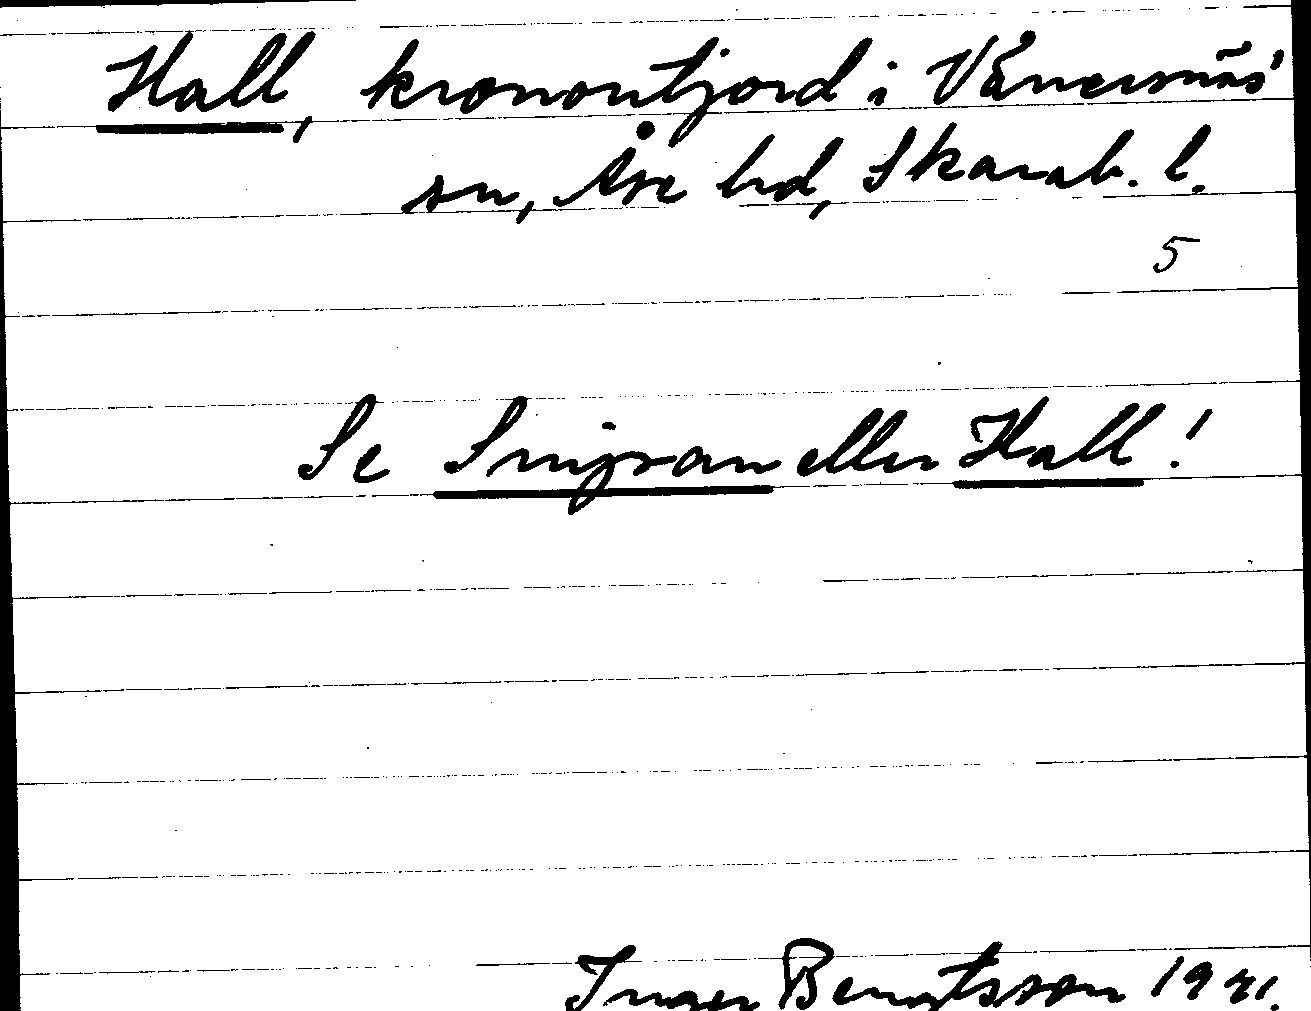 Hall, kronontjord i Vänersnäs'
sn, Åse hd, Skarab. l.
5
Se eller Hall!
Inger Bengtsson 1941.